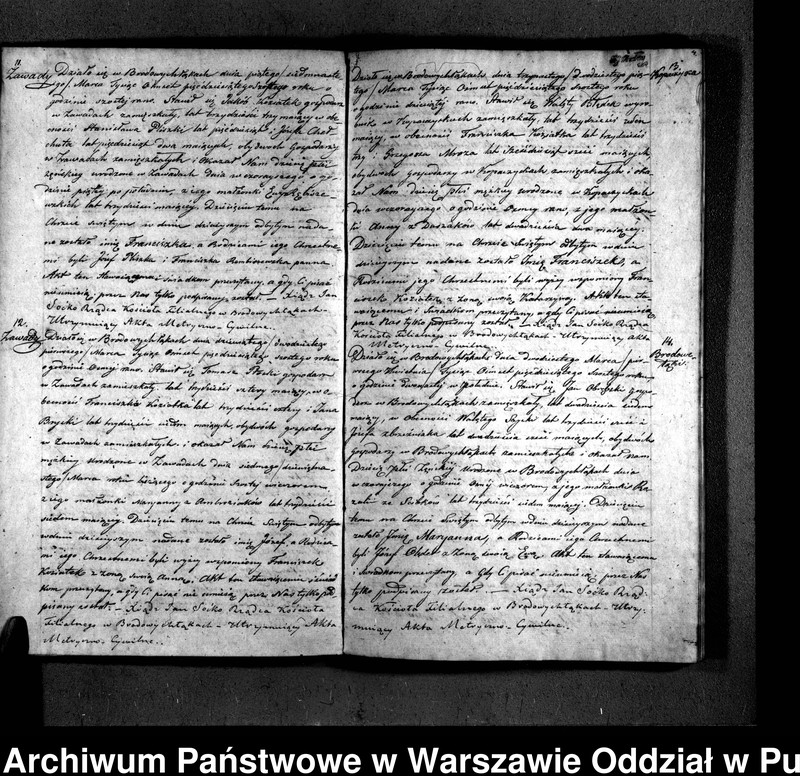 11.
Zawady
Działo się w Brodowychłąkach dnia piątego/siedmnaste
go/ Marca Tysiąc Ośmset pięćdziesiątego szóstego roku o
godzinie szóstej rano. Stawił się Koziatek gospodarz
w Zawadach zamieszkały, lat trzydzieści trzy mający w obe
cności Stanisława Pliszki lat pięćdziesiąt i Józefa Choł
chuta lat pięćdziesiąt dwa mających, obydwóch Gospodarzy
w Zawadach zamieszkałych i okazał Nam dziecię płci
żeńskiej urodzone w Zawadach dnia wczorajszego o go
dzinie piątej po południu, z jego małżonki
lat trzydzieści mającej. Dziecięciu temu na
Chrzcie świętym w dniu dzisiejszym odbytym nada
ne zostało imię Franciszka, a Rodzicami jego Chrzestne
mi byli Józef Pliszka i Franciszka panna.
Akt ten stawającemu i świadkom przeczytany, a gdy Ci pisać
nieumieją, przez Nas tylko podpisany został. — Xiądz Jan
Soćko Rządca Kościoła Filialnego w Brodowychłąkach
Utrzymujący Akta Metryczno-Cywilne.
12.
Zawady
Działo się w Brodowychłąkach dnia dziewiątego/dwudziestego
pierwszego/ Marca Tysiąc Ośmset pięćdziesiątego szóstego roku
o godzinie ósmej rano. Stawił się Tomasz Pliszka gospodarz
w Zawadach zamieszkały, lat trzydzieści cztery mający, w o
becności Franciszka Koziatka lat trzydzieści cztery i Jana
lat trzydzieści siedm mających, obydwóch gospodarzy
w Zawadach zamieszkałych, i okazał Nam dziecię płci
męzkiej urodzone w Zawadach dnia siódmego/dziewiętna
stego/ Marca roku bieżącego o godzinie szóstej wieczorem
z jego małżonki Maryanny z lat trzydzieści
siedem mającej. Dziecięciu temu na Chrzcie Świętym odbytym
w dniu dzisiejszym nadane zostało imię Józef, a Rodzica
mi jego Chrzestnemi byli wyżej wspomniony Franciszek
Koziatek z żoną swoją Anną. Akt ten stawającemu i świad
kom przeczytany, a gdy Ci pisać nie umieją przez Nas tylko pod
pisany został. — Xiądz Jan Soćko Rządca Kościoła
Filialnego w Brodowychłąkach Utrzymujący Akta
Metryczno-Cywilne.
13.
Działo się w Brodowychłąkach dnia trzynastego/dwudziestego pią
tego/ Marca Tysiąc Ośmset pięćdziesiątego szóstego roku
o godzinie dziewiątej rano. Stawił się wyro
bnik w zamieszkały, lat trzydzieści siedm
mający, w obecności Franciszka Koziatka lat trzydzieści
trzy i Grzegorza Mroza lat sześćdziesiąt sześć mających,
obydwóch gospodarzy w zamieszkałych i oka
zał Nam dziecię płci męzkiej urodzone w
dnia wczorajszego o godzinie ósmej rano, z jego małżon
ki Anny z lat dwadzieścia dwa mającej.
Dziecięciu temu na Chrzcie świętym odbytym w dniu
dzisiejszym nadane zostało Imię Franciszek, a
Rodzicami jego Chrzestnemi byli wyżej wspomniony Fran
ciszek Koziatek z żoną swoją Katarzyną. Akt ten sta
wającemu i świadkom przeczytany, a gdy Ci pisać nieumieją
przez Nas tylko podpisany został. — Xiądz Jan Soćko Rządca
Kościoła Filialnego w Brodowychłąkach Utrzymujący akta
Metryczno-Cywilne.
14.
Brodowe
łąki.
Działo się w Brodowychłąkach dnia dwudziestego Marca/pier
wszego Kwietnia/ Tysiąc Ośmset pięćdziesiątego szóstego roku,
o godzinie dwunastej w południe. Stawił się Jan gospo
darz w Brodowychłąkach zamieszkały, lat dwadzieścia siedm
mający, w obecności lat trzydzieści sześć i
Józefa lat dwadzieścia sześć mających, obydwóch
gospodarzy w Brodowychłąkach zamieszkałych i okazał Nam
Dziecię płci Żeńskiej Urodzone w Brodowychłąkach dnia
wczorajszego o godzinie wieczorem, z jego małżonki Ro
zalii ze lat trzydzieści siedm mającej. Dziecięciu
temu na Chrzcie Świętym odbytym w dniu dzisiejszym nadane
zostało Imię Maryanna, a Rodzicami jego Chrzestnemi
byli Józef z żoną swoją Ewą. Akt ten Stawającemu
i świadkom przeczytany, a Gdy Ci pisać nieumieją, przez Nas
tylko podpisany został. — Xiądz Jan Soćko Rząd
ca Kościoła Filialnego w Brodowychłąkach Utrzy
mujący Akta Metryczno-Cywilne.
Archiwum Państwowe w Warszawie Oddział w Pu